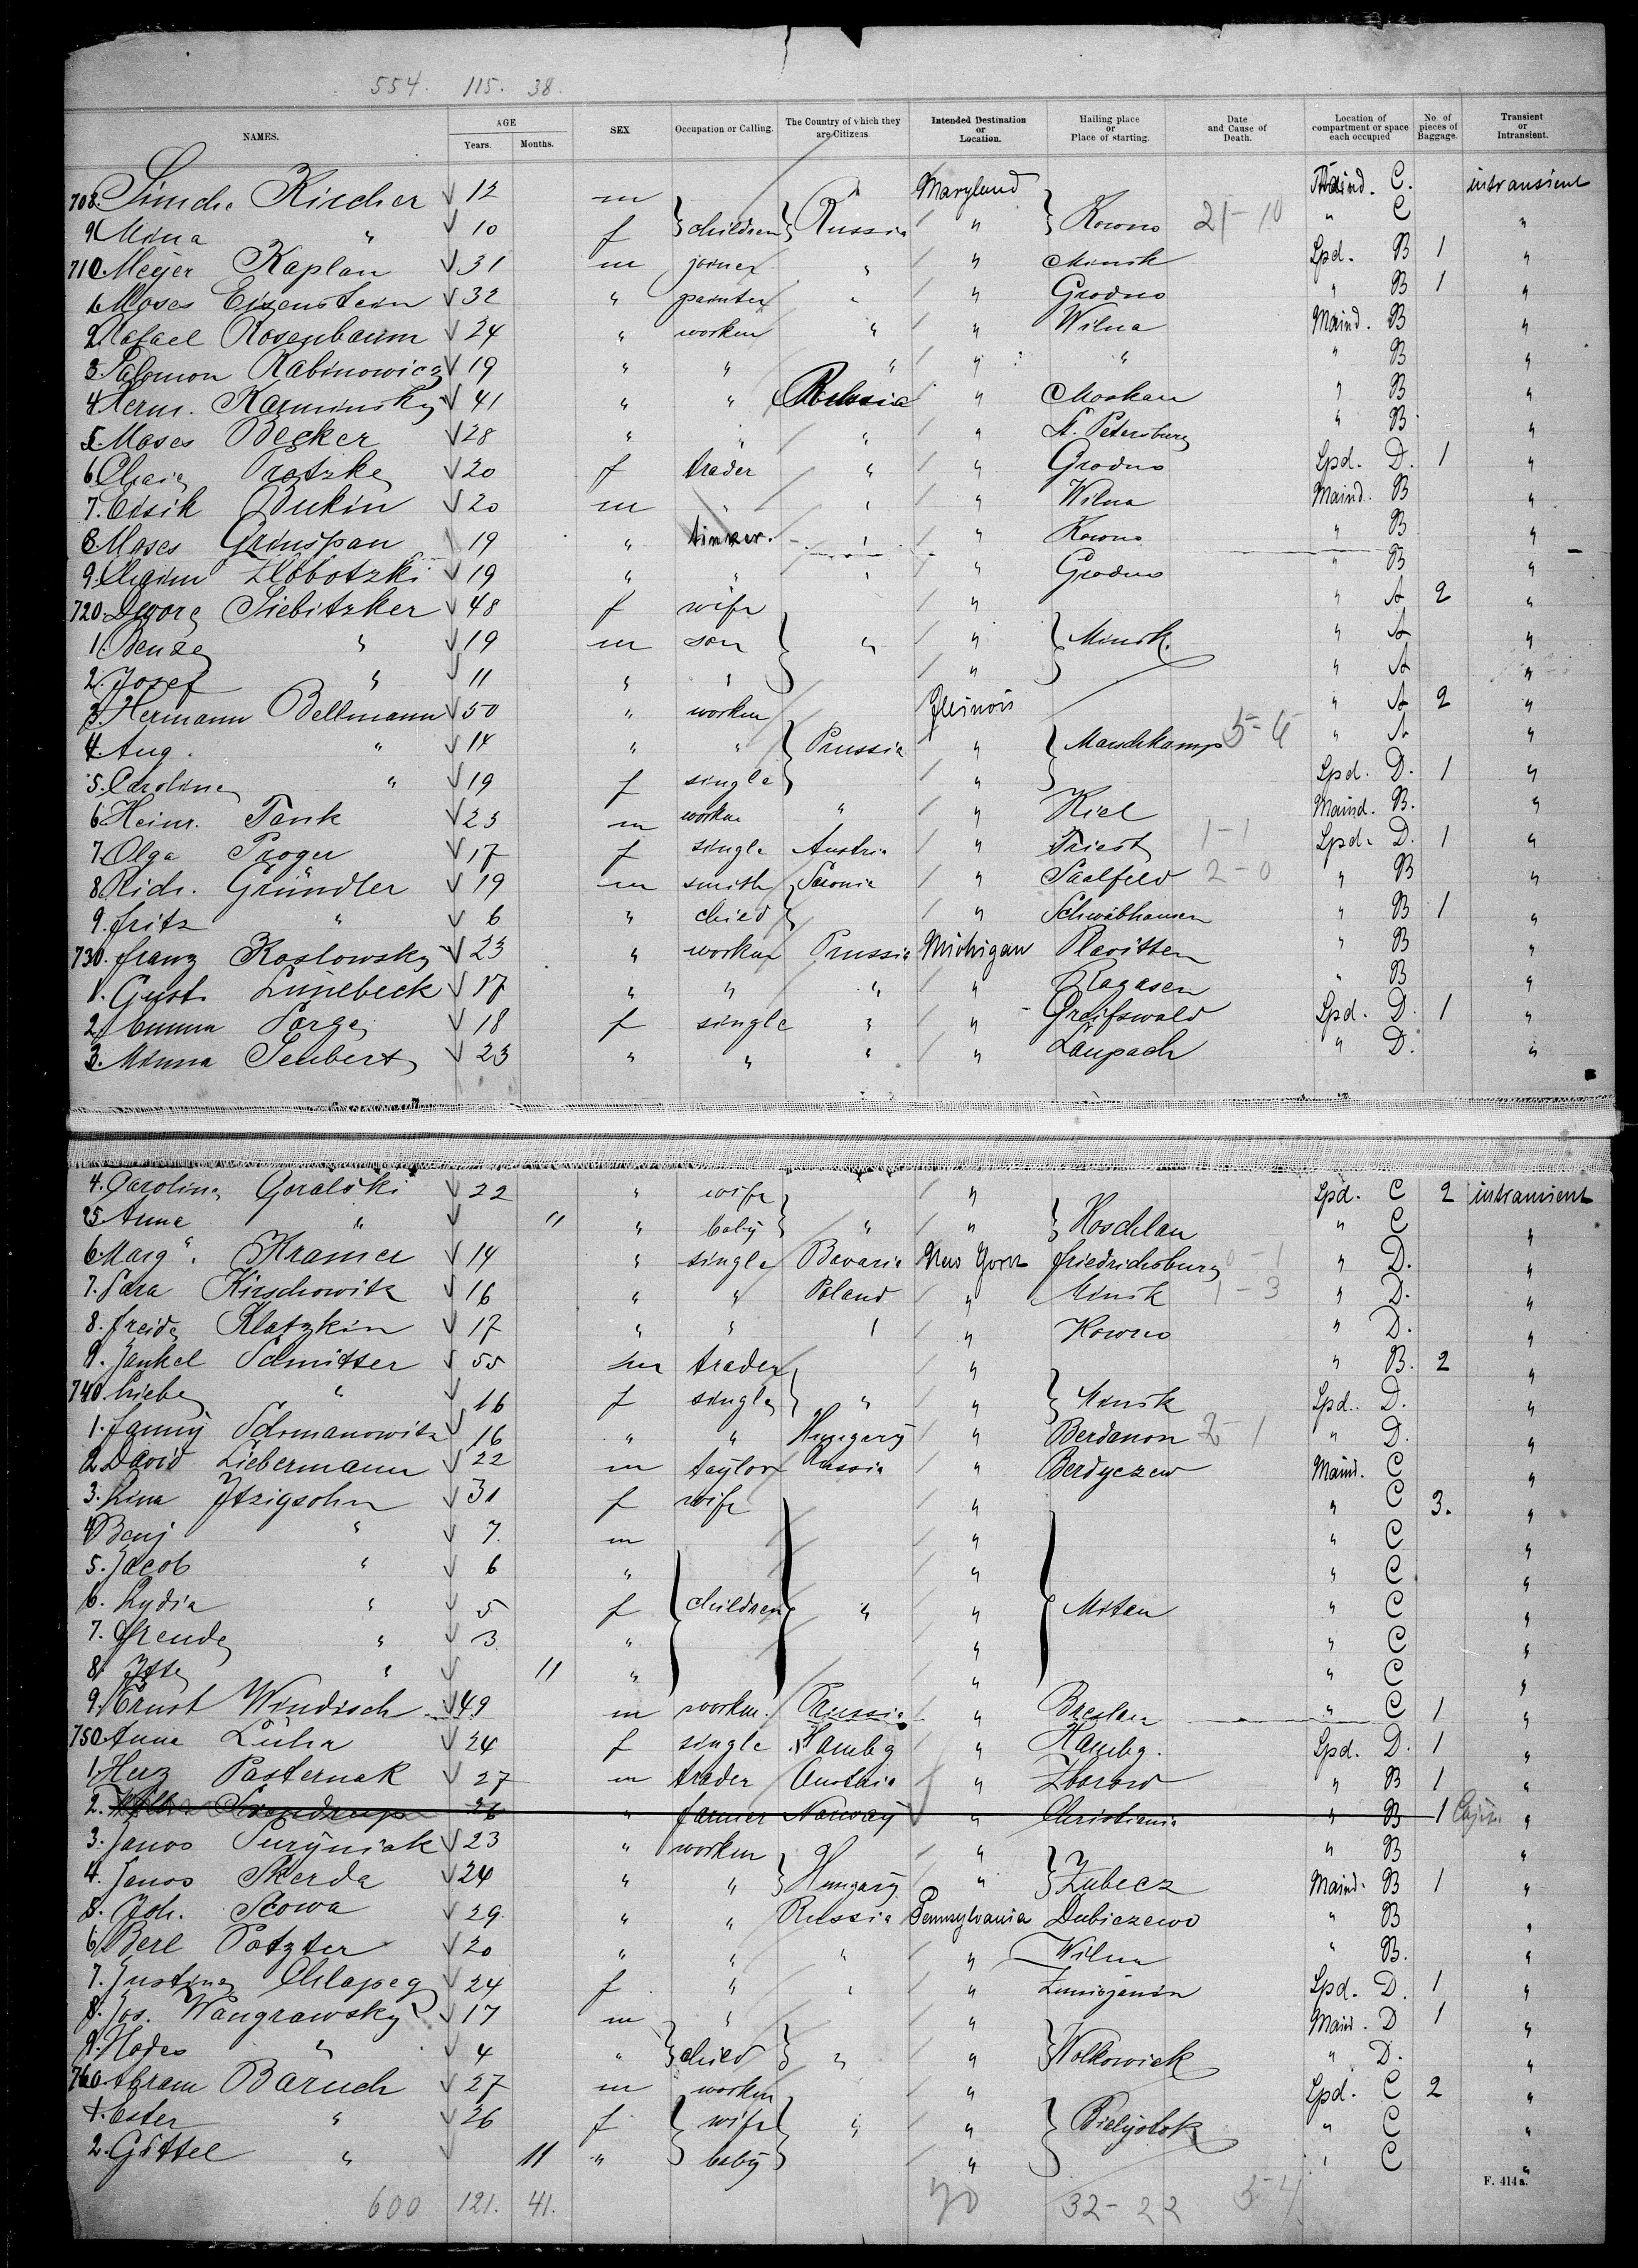 554. 115. 38.
NAMES. AGE Years. Months. SEX Occupation or Calling. The Country of which they are Citizens Intended Destination or Location. Hailing place or Place of starting. Date and Cause of Death. Location of compartment or space each occupied No. of pieces of Baggage. Transient or Intransient.
708. Kircher 12 m Maryland C. intransient
9 Mina " 10 f children Russia " Kowno 21-10 " C "
710. Meyer Kaplan 31 m joiner " " Minsk Lpd. B 1 "
1. Moses Eisenstein 32 " painter " " Grodno " B 1 "
2. Rafael Rosenbaum 24 " worker " " Wilna Maind. B "
3. Salomon Rabinowicz 19 " " " " " " B "
4. Herm. Karminsky 41 " " Russia " Moskau " B "
5. Moses Becker 28 " " " " St. Petersburg " B "
6 Trotzke 20 f trader " " Grodno Lpd. D. 1 "
7. Eisik Bukin 20 m " " " Wilna Maind. B "
8 Moses Grinspan 19 " " " Kowno " B "
9. Chaim Zlobotzki 19 " " " " Grodno " B "
720. Dwore Siebitzker 48 f wife " " A 2 "
1. " 19 m son " " Minsk. " A "
2. Josef " 11 " " " " A "
3. Hermann Bellmann 50 " worker Illinois " A 2 "
4. Aug. " 14 " " Prussia " 5-6 " A "
5. Caroline " 19 f single " Lpd. D. 1 "
6. Heinr. Tank 23 m worker " " Kiel Maind. B. "
7. Olga Troger 17 f single Austria " Triest 1-1 Lpd. D. 1 "
8 Rich. Gründler 19 m smith Saxonia " Saalfeld 2-0 " B "
9. Fritz " 6 " child " Schwabhausen " B 1 "
730. Franz Koslowsky 23 " worker Prussia Michigan Plavitten " B "
1. Gust. Lünebeck 17 " " " " Ragasen " B "
2. Emma Sorge 18 f single " " Greifswald Lpd. D. 1 "
3. Minna Seubert 23 " " " " Laupach " D. "
4. Caroline Goralski 22 " wife " Lpd. C 2 intransient
25 Anna " 11 " baby " " Koschlau " C "
6. Marg. Kramer 14 " single Bavaria New York Friedrichsburg 0-1 " D. "
7. Sara Hirschowitz 16 " " Poland " Minsk 1-3 " D. "
8. Freide Klatzkin 17 " " " " Kowno " D. "
9. Jankel Schnitser 55 m trader " " B. 2 "
740. Liebe " 16 f single " " Minsk Lpd. D. "
1. Fanny Schmanowitz 16 " " Hungary " 2-1 " D. "
2 David Liebermann 22 m taylor Russia " Berdyczew Maind. C "
3. Lina Itzigsohn 31 f wife " " C 3. "
4 Benj " 7. m " " C "
5. Jacob " 6 " " " C "
6. Lydia " 5 f children " " Mitau " C "
7. " 3 " " " C "
8. " 11 " " " C "
9. Ernst Windisch 49 m worker. Prussia " Breslau " C 1 "
750 Anna Lühr 24 f single Hambg " Hambg. Lpd. D. 1 "
1. Herz Pasternak 27 m trader Austria " Zborow " B 1 "
2. 26 " farmer Norway " Christiania " B 1 "
3. Janos Suryniak 23 " worker " " B "
4. Janos Skerda 24 " " Hungary " Zubecz Maind. B 1 "
5. Joh. Scowa 29. " " Russia Pennsylvania Dubiczewo " B "
6 Berl Potzter 20 " " " " Wilna " B. "
7. Justine Chlapeg 24 f " " " Lpd. D. 1 "
8. Jos. Wangrawsky 17 m " " Maind. D 1 "
9. " 4 " child " " Wolkowick " D. "
760 Abram Baruch 27 m worker " Lpd. C 2 "
1. Ester " 26 f wife " " Bielystok " C "
2. Gittel " 11 " baby " " C "
600 121. 41. 70 32-22 5-4
F. 414 a.